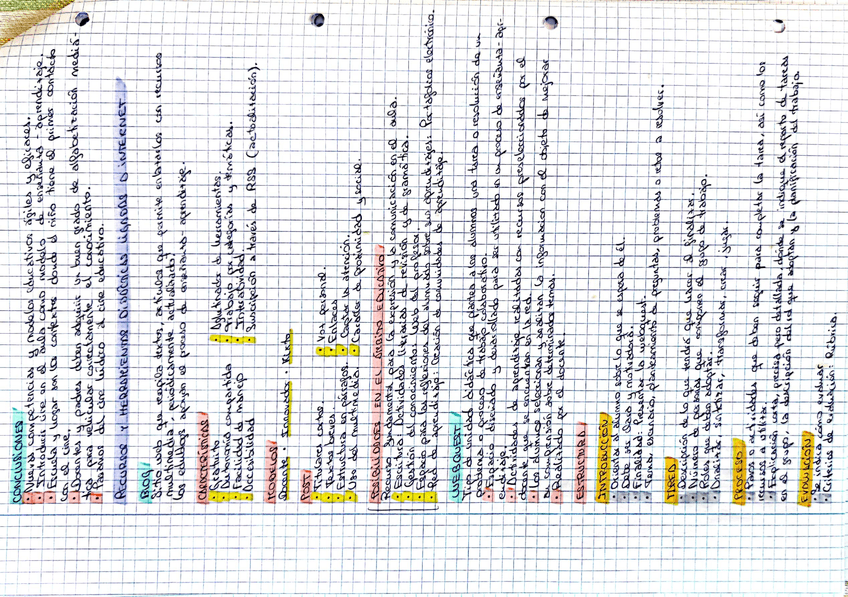 CONCLUSIONES
· Nuevas competencias y modelos educativos ágiles y eficaces.
· Introducir cine en el aula como modelo de enseñanza-aprendizaje.
· Escuela lugar en los contextos donde el niño tiene el primer contacto
con el cine.
· Docentes y padres deben adquirir un buen grado de alfabetización mediá-
tica para vehicular correctamente el conocimiento.
· Pasamos del cine lúdico al cine educativo.
RECURSOS Y HERRAMIENTAS DIDÁCTICAS LIGADAS A INTERNET
BLOG
Sitio web que recopila textos, artículos que permite enlazarlos con recursos
multimedia, periódicamente actualizado.
Los edublogs apoyan el proceso de enseñanza-aprendizaje.
CARACTERÍSTICAS
· Gratuito
· Autonomía compartida
· Facilidad de manejo
· Accesibilidad
· Aglutinador de herramientas.
· Trabajo por categorías y temáticas.
· Interactividad
· Suscripción a través de RSS (actualización).
MODELOS
Docente · Innovador · Mixto
POST
· Titulares cortos.
· Textos breves.
· Estructura en párrafos.
· Uso del multimedia.
· Voz personal
· Enlaces
· Captar la atención.
· Carácter de proximidad y social.
POSIBILIDADES EN EL ÁMBITO EDUCATIVO
Recurso fundamental para la expresión y la comunicación en el aula.
· Escritura: Actividades literarias, de revisión y de gramática.
· Gestión del conocimiento: Weblog del profesor.
· Espacio para las reflexiones del alumnado sobre sus aprendizajes: Portafolios electrónico.
· Red de aprendizaje: Creación de comunidades de aprendizaje.
WEBQUEST
Tipo de unidad didáctica que plantea a los alumnos una tarea o resolución de un
problema o proceso de trabajo colaborativo.
· Espacio diseñado y desarrollado para ser utilizado en un proceso de enseñanza-apr-
endizaje.
· Actividades de aprendizaje realizadas con recursos preseleccionados por el
docente que se encuentran en la red.
· Los alumnos seleccionan y analizan la información con el objeto de mejorar
su comprensión sobre determinados temas.
· Prediseñado por el docente.
ESTRUCTURA
INTRODUCCIÓN
· Orienta al alumno sobre lo que se espera de él.
· Debe ser clara y motivadora.
· Finalidad: Presentar la webquest.
· Tema, escenario, planteamiento de preguntas, problemas o retos a resolver.
TAREA
· Descripción de lo que tendrá que hacer al finalizar.
· Número de personas que componen el grupo de trabajo.
· Roles que deben adoptar.
· Analizar, sintetizar, transformar, crear, juzgar.
PROCESO
· Pasos o actividades que deben seguir para completar la tarea, así como los
recursos a utilizar.
· Explicación corta, precisa pero detallada, donde se indique el reparto de tareas
en el grupo, la descripción del rol que adoptan y la planificación del trabajo.
EVALUACIÓN
· Se indica cómo evaluar.
· Criterios de evaluación: Rúbrica.